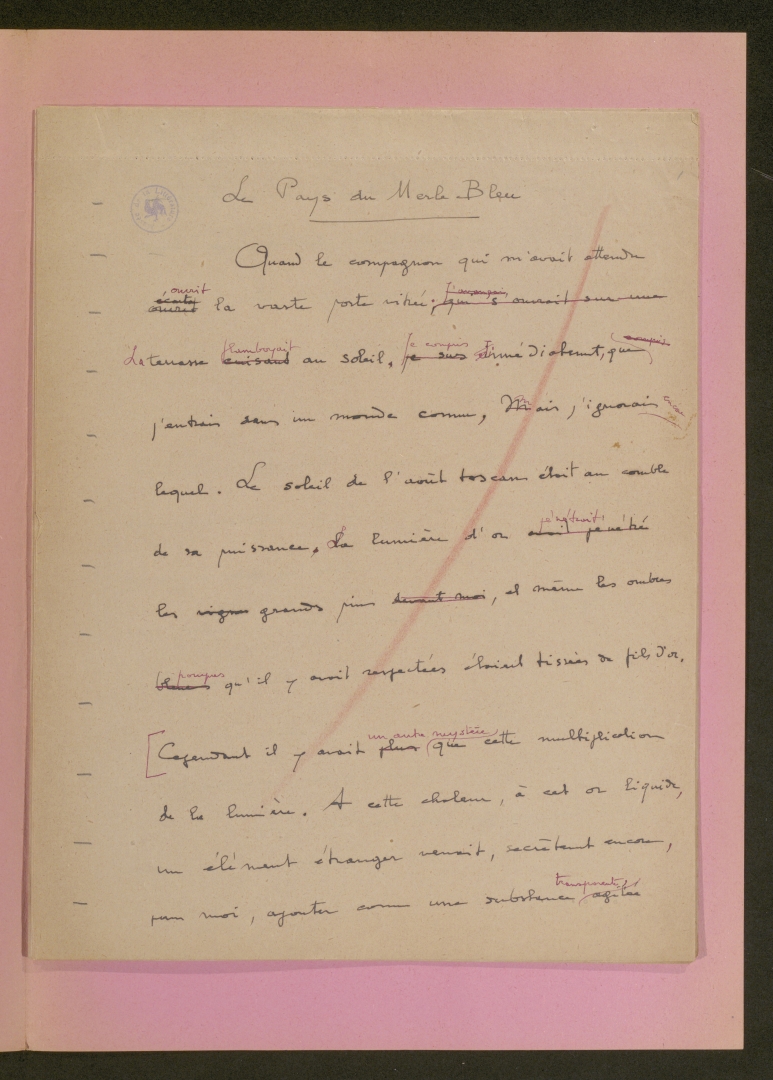 Le Pays du Merle Bleu
Quand le compagnon qui m'avait attendu
, ouvrit J'avançai,
écarta ouvrit la vaste porte vitrée, qui s'ouvrait sur une
flamboyait Je compris
La terrasse cuisant au soleil, je sus immédiatement, que
compris
j'entrais dans un monde connu, Mais j'ignorais encore
lequel. Le soleil de l'août toscan était au comble
pénétrait
de sa puissance. La lumière d'or avait pénétré
les vignes grands pins devant moi, et même les ombres
pourpres
bleues qu'il y avait respectées étaient tissées de fils d'or.
un autre mystère
[Cependant il y avait plus que cette multiplication
de la lumière. A cette chaleur, à cet or liquide,
un élément étranger venait, secrètement encore,
transparente
pour moi, ajouter comme une substance agitée